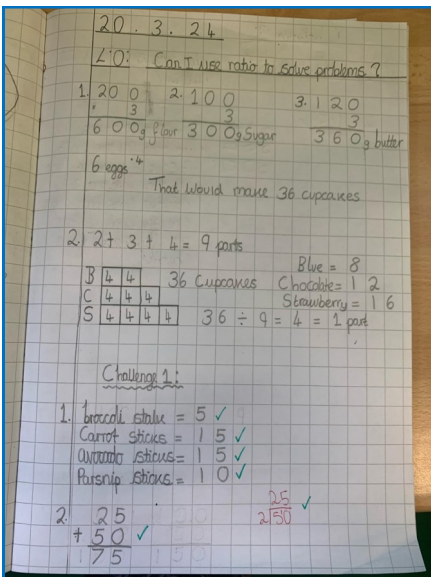 20.3.24
L:O: Can I use ratio to solve problems?
1. 200 2. 100 3. 120
3 3 3
600g flour 300g Sugar 360g butter
6 eggs
That would make 36 cupcakes
2. 2 + 3 + 4 = 9 parts
Blue = 8
B 4 4 36 Cupcakes Chocolate = 12
C 4 4 4 Strawberry = 16
S 4 4 4 4 36 ÷ 9 = 4 = 1 part
Challenge 1:
1. broccoli stalk = 5 ✓
Carrot sticks = 15 ✓
avocado sticks = 15 ✓
Parsnip sticks = 10 ✓
2. 25
+ 50 ✓
75
25 ✓
2 50